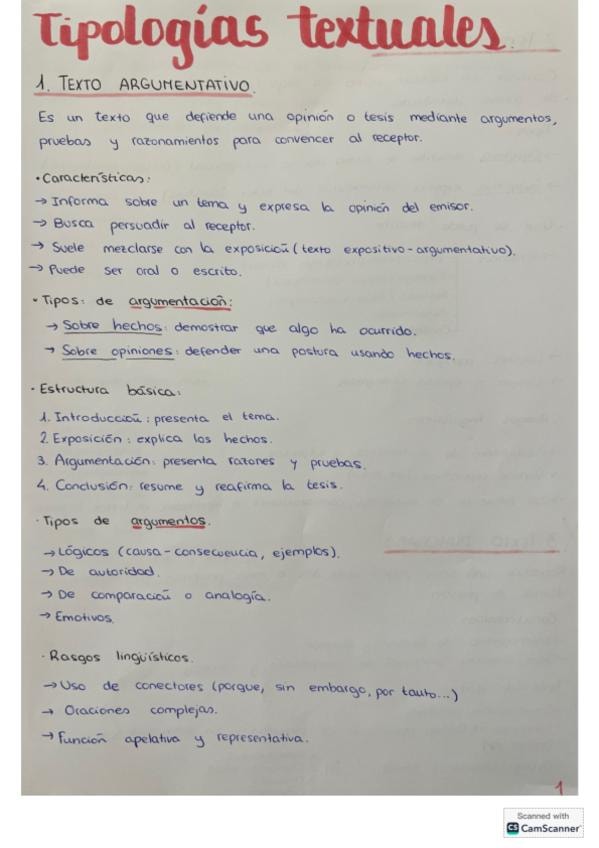 Tipologías textuales.
1. TEXTO ARGUMENTATIVO.
Es un texto que defiende una opinión o tesis mediante argumentos,
pruebas y razonamientos para convencer al receptor.
· Características:
→ Informa sobre un tema y expresa la opinión del emisor.
→ Busca persuadir al receptor.
→ Suele mezclarse con la exposición (texto expositivo-argumentativo).
→ Puede ser oral o escrito.
· Tipos: de argumentación:
→ Sobre hechos: demostrar que algo ha ocurrido.
→ Sobre opiniones: defender una postura usando hechos.
· Estructura básica:
1. Introducción: presenta el tema.
2. Exposición: explica los hechos.
3. Argumentación: presenta razones y pruebas.
4. Conclusión: resume y reafirma la tesis.
· Tipos de argumentos.
→ Lógicos (causa-consecuencia, ejemplos).
→ De autoridad.
→ De comparación o analogía.
→ Emotivos.
· Rasgos lingüísticos.
→ Uso de conectores (porque, sin embargo, por tanto...)
→ Oraciones complejas.
→ Función apelativa y representativa.
1
Scanned with
CS CamScanner